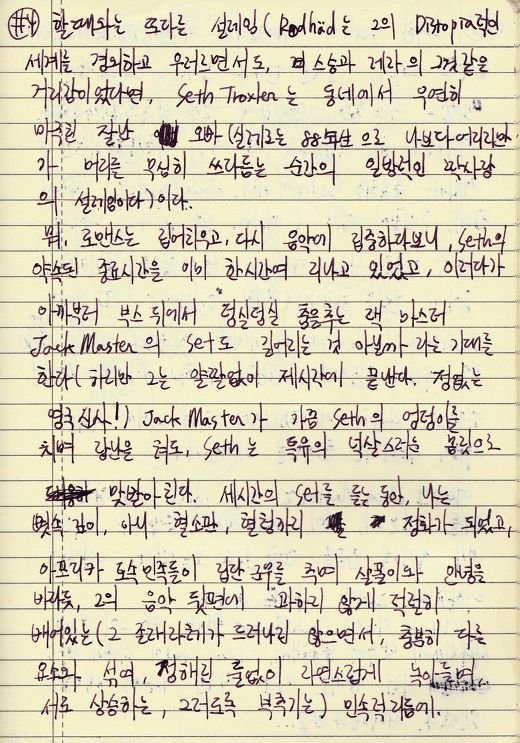 #4 할때와는 또다른 설레임 (Rødhåd는 그의 Distopia적인
세계를 경외하고 우러르면서도, 스승과 제자의 그것같은
거리감이었다면, Seth Troxler는 동네에서 우연히
마주친 잘난 오빠 (실제로는 88년생으로 나보다 어리지만)
가 머리를 무심히 쓰다듬는 순간의 일방적인 짝사랑
의 설레임이다)이다.
뭐, 로맨스는 집어치우고, 다시 음악에 집중하다보니, Seth의
약속된 종료시간을 이미 한시간여 지나고 있었고, 이러다가
아까부터 부스 뒤에서 덩실덩실 춤을추는 잭 마스터
Jack Master의 set도 길어지는 것 아닐까 라는 기대를
한다 (하지만 그는 얄짤없이 제시각에 끝낸다. 정없는
영국신사!) Jack Master가 가끔 Seth의 엉덩이를
치며 장난을 쳐도, Seth는 특유의 넉살스러운 몸짓으로
맞받아친다. 세시간의 set를 듣는 동안, 나는
뼛속 깊이, 아니 혈소판, 혈청까지 정화가 되었고,
아프리카 토속민족들이 집단 군무를 추며 살풀이와 안녕을
바라듯, 그의 음악 뒷편에 과하지 않게 적절히
배어있는 (그 존재자체가 드러나진 않으면서, 충분히 다른
요소와 섞여, 정해진 틀없이 자연스럽게 녹아들며
서로 상승하는, 그러도록 부추기는) 민속적 리듬에.